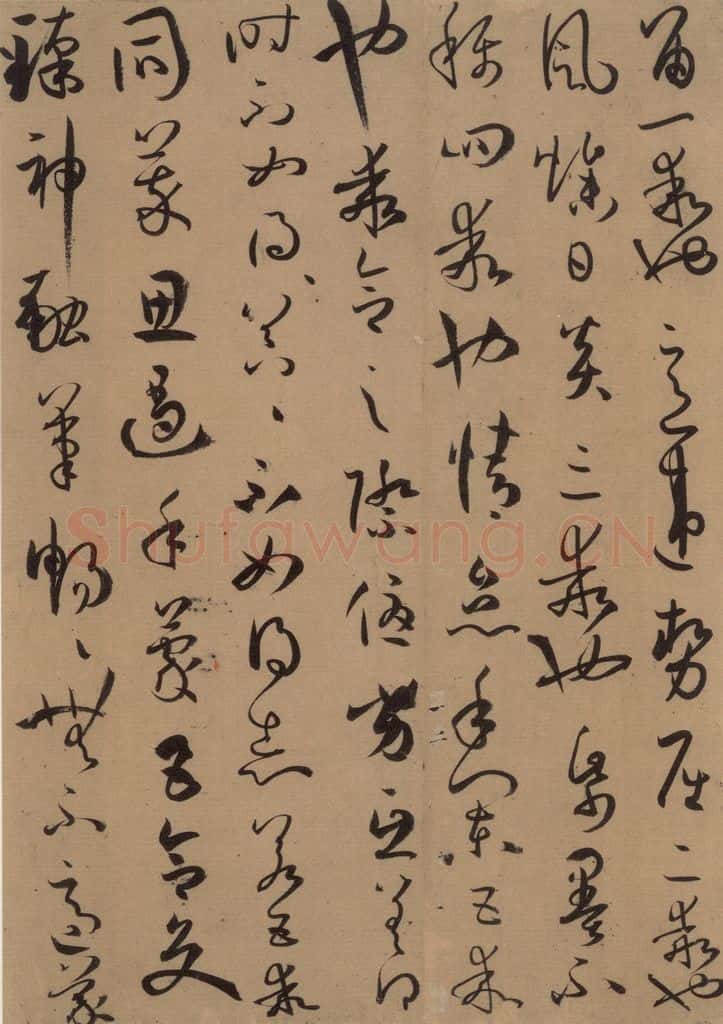 留一乖也意違勢屈二乖也
風燥日炎三乖也紙墨不
稱四乖也情怠手闌五乖
也乖合之際優劣互差得
時不如得、器、不如得志若五乖
同萃思遏手蒙五合交
臻神融筆暢、無不適蒙
Shufawang.CN